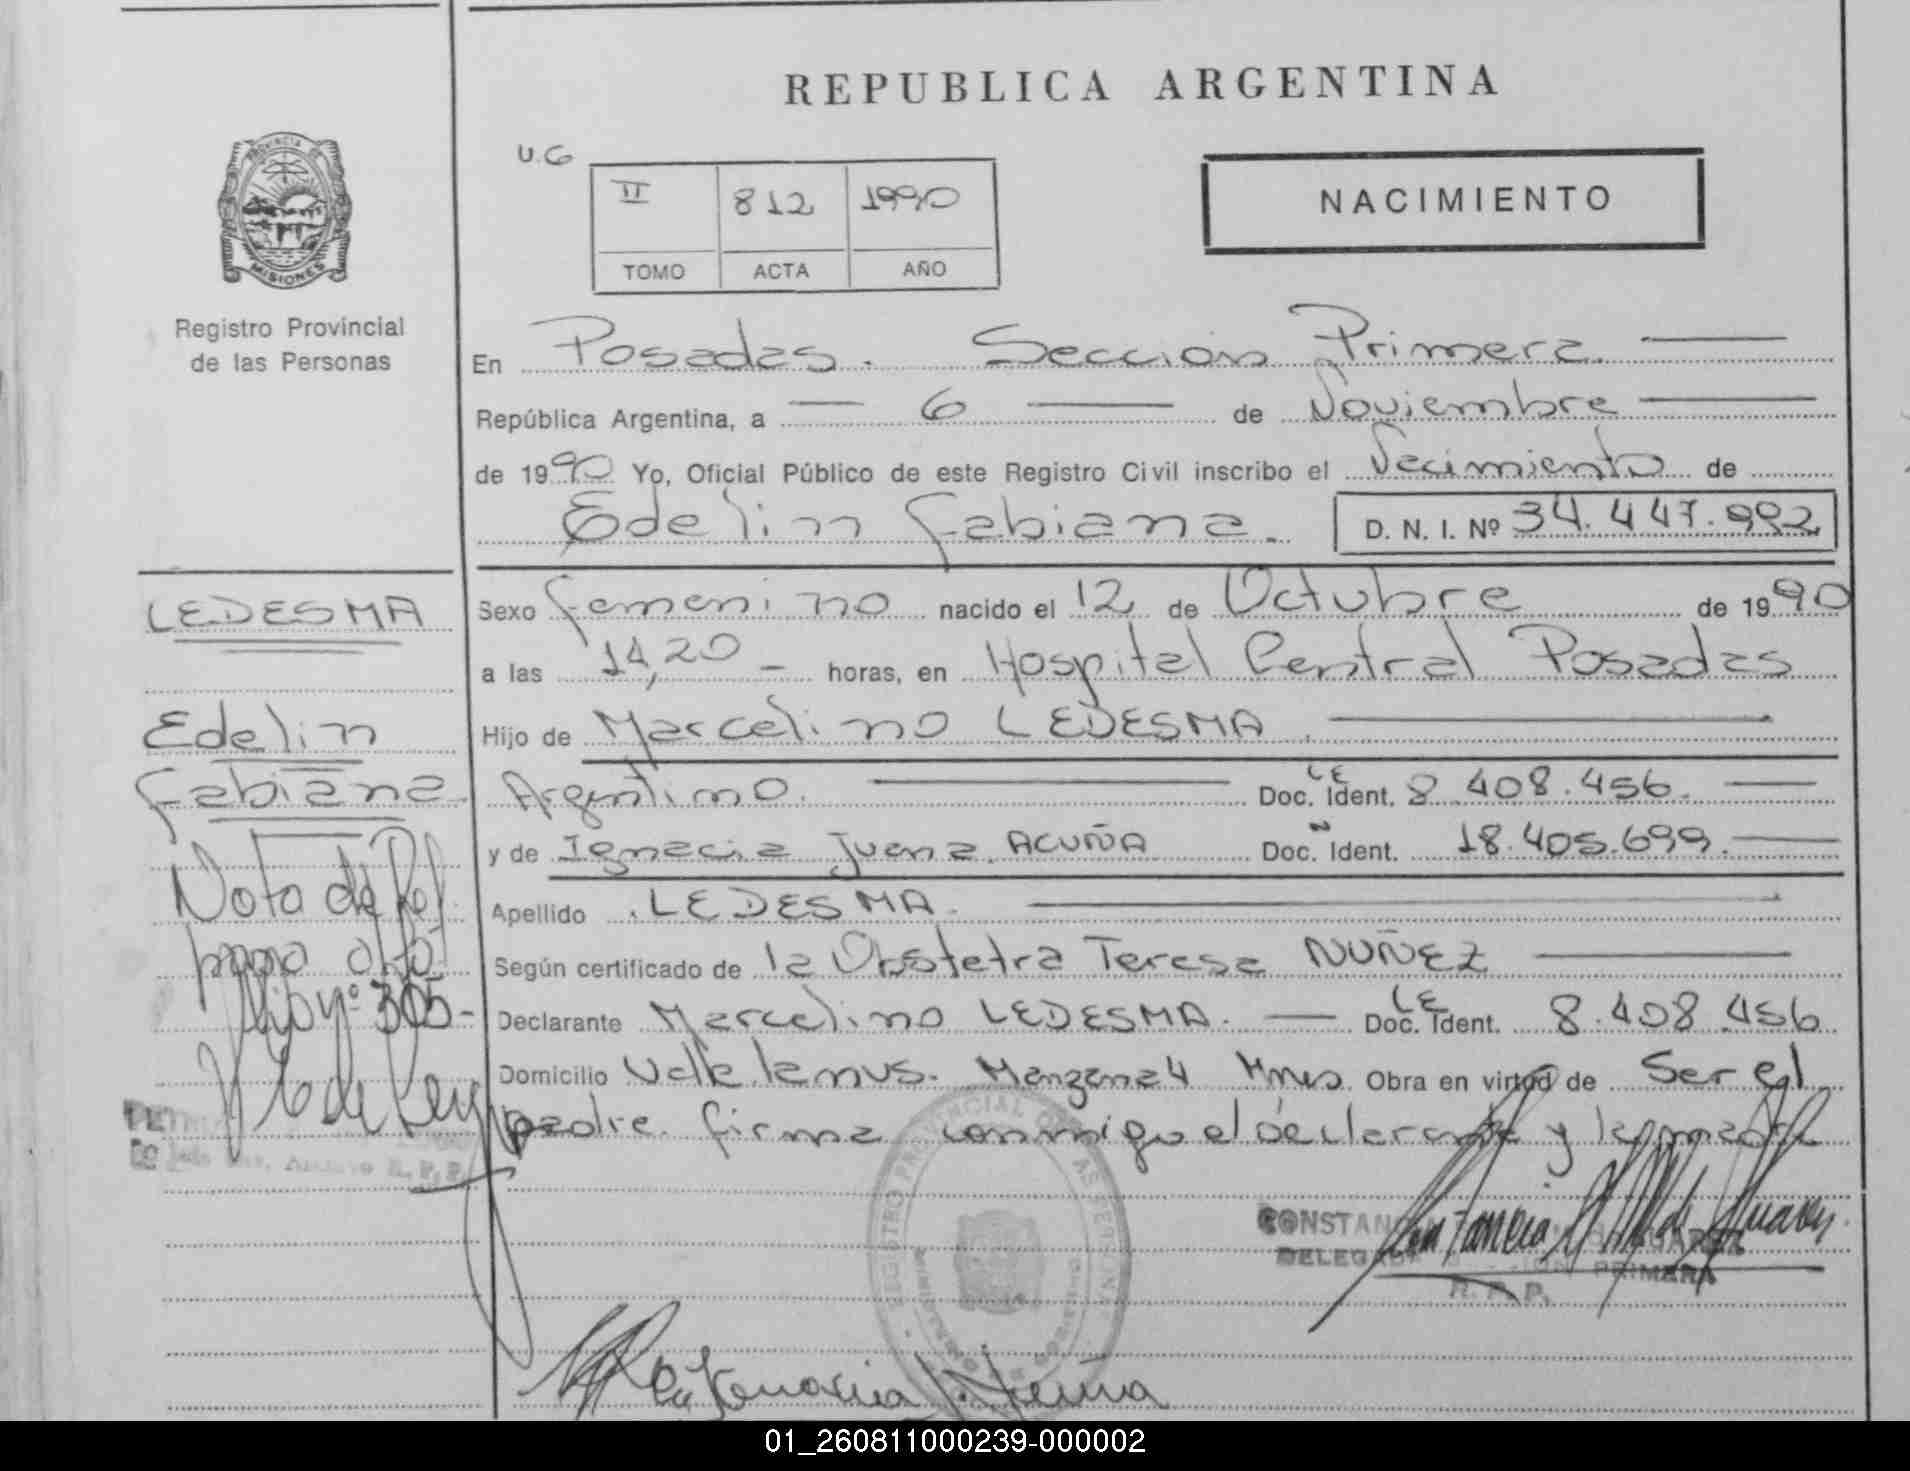 REPUBLICA ARGENTINA
U.G
II 812 1990
TOMO ACTA AÑO
NACIMIENTO
PROVINCIA DE
MISIONES
Registro Provincial
de las Personas
En Posadas. Sección Primera.
República Argentina, a 6 de Noviembre
de 1990 Yo, Oficial Público de este Registro Civil inscribo el Nacimiento de
Edelin Fabiana. D. N. I. Nº 34.447.992
LEDESMA
Edelin
Fabiana
Sexo femenino nacido el 12 de Octubre de 1990
a las 14,20 - horas, en Hospital Central Posadas
Hijo de Marcelino LEDESMA
Argentino. Doc. Ident. LE 8.408.456.
y de Ignacia Juana ACUÑA Doc. Ident. 18.405.699.
Apellido LEDESMA.
Según certificado de la Obstetra Teresa NUÑEZ
Declarante Marcelino LEDESMA. Doc. Ident. LE 8.408.456
Domicilio Manzana 4 Mnes Obra en virtud de Ser el
padre. firma conmigo el declarante y la madre
Nota de Ref.
Nº 305-
REGISTRO PROVINCIAL DE LAS PERSONAS
DELEG PRIMERA
R. P. P.
01_260811000239-000002